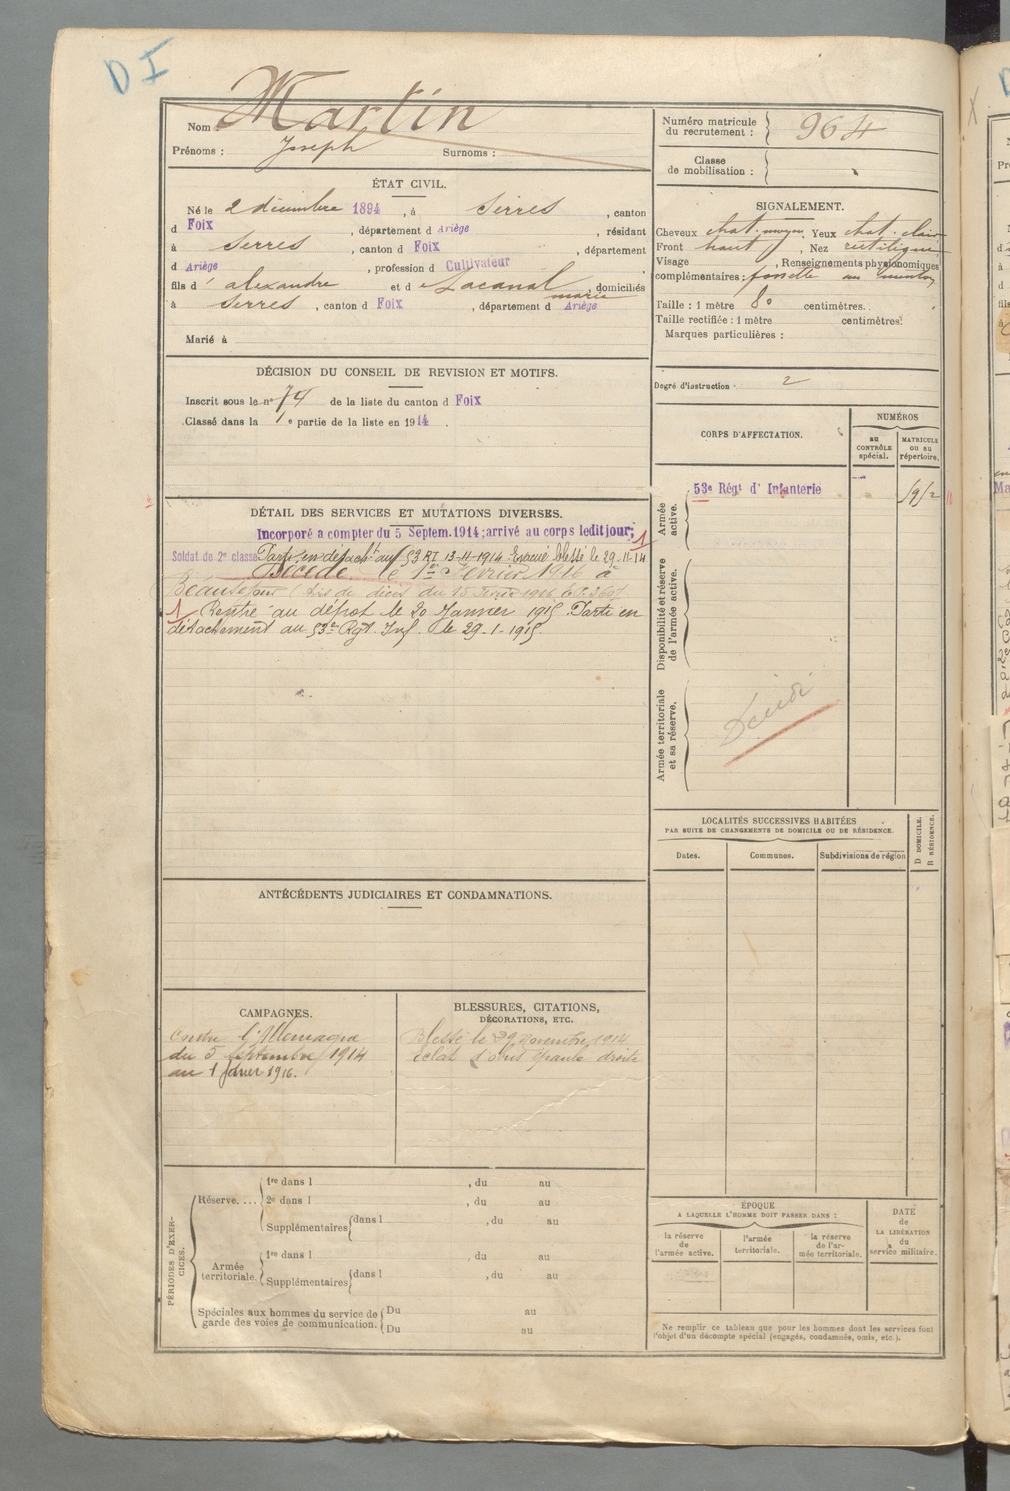 D I
Nom : Martin
Prénoms : Joseph Surnoms :
Numéro matricule
du recrutement : 964
Classe
de mobilisation :
ÉTAT CIVIL.
Né le 2 décembre 1894, à Serres, canton
d Foix, département d Ariège, résidant
à Serres, canton d Foix, département
d Ariège, profession d Cultivateur
fils d alexandre et d Lacanal marie, domiciliés
à Serres, canton d Foix, département d Ariège
Marié à
SIGNALEMENT.
Cheveux chat. moyen. Yeux chat. clair
Front haut, Nez rectiligne
Visage , Renseignements physionomiques
complémentaires : fossette au menton
Taille : 1 mètre 80 centimètres.
Taille rectifiée : 1 mètre centimètres.
Marques particulières :
Degré d'instruction. 2
DÉCISION DU CONSEIL DE REVISION ET MOTIFS.
Inscrit sous le n° 74 de la liste du canton d Foix
Classé dans la 1e partie de la liste en 1914.
CORPS D'AFFECTATION.
NUMÉROS
au CONTRÔLE spécial.
MATRICULE OU au répertoire.
Armée active.
53e Régt d' Infanterie
Disponibilité et réserve de l'armée active.
Armée territoriale et sa réserve.
DÉTAIL DES SERVICES ET MUTATIONS DIVERSES.
Incorporé a compter du 5 Septem. 1914; arrivé au corps ledit jour; 1
Soldat de 2e classe. Parti en détacht au 53 RI 13-11-1914. Evacué blessé le 29-11-14
Décédé le 1er Février 1916 à
Beauséjour (Avis de décès du 15 1916
1 Rentré au dépôt le 20 Janvier 1915. Parti en
détachement au 53e Rgt. Inf. le 29-1-1915.
LOCALITÉS SUCCESSIVES HABITÉES
PAR SUITE DE CHANGEMENTS DE DOMICILE OU DE RÉSIDENCE.
D DOMICILE.
R RÉSIDENCE.
Dates. Communes. Subdivisions de région
ANTÉCÉDENTS JUDICIAIRES ET CONDAMNATIONS.
CAMPAGNES.
Contre l'Allemagne
du 5 septembre 1914
au 1 1916.
BLESSURES, CITATIONS,
DÉCORATIONS, ETC.
Blessé le 29 novembre 1914
Eclat d'obus épaule droite
PÉRIODES D'EXERCICES.
Réserve....
1re dans l , du au
2e dans l , du au
Supplémentaires dans l , du au
Armée territoriale.
1re dans l , du au
Supplémentaires dans l , du au
Spéciales aux hommes du service de
garde des voies de communication.
Du au
Du au
ÉPOQUE
A LAQUELLE L'HOMME DOIT PASSER DANS :
la réserve de l'armée active.
l'armée territoriale.
la réserve de l'armée territoriale.
DATE
de
LA LIBÉRATION
du
service militaire.
Ne remplir ce tableau que pour les hommes dont les services font
l'objet d'un décompte spécial (engagés, condamnés, omis, etc.).